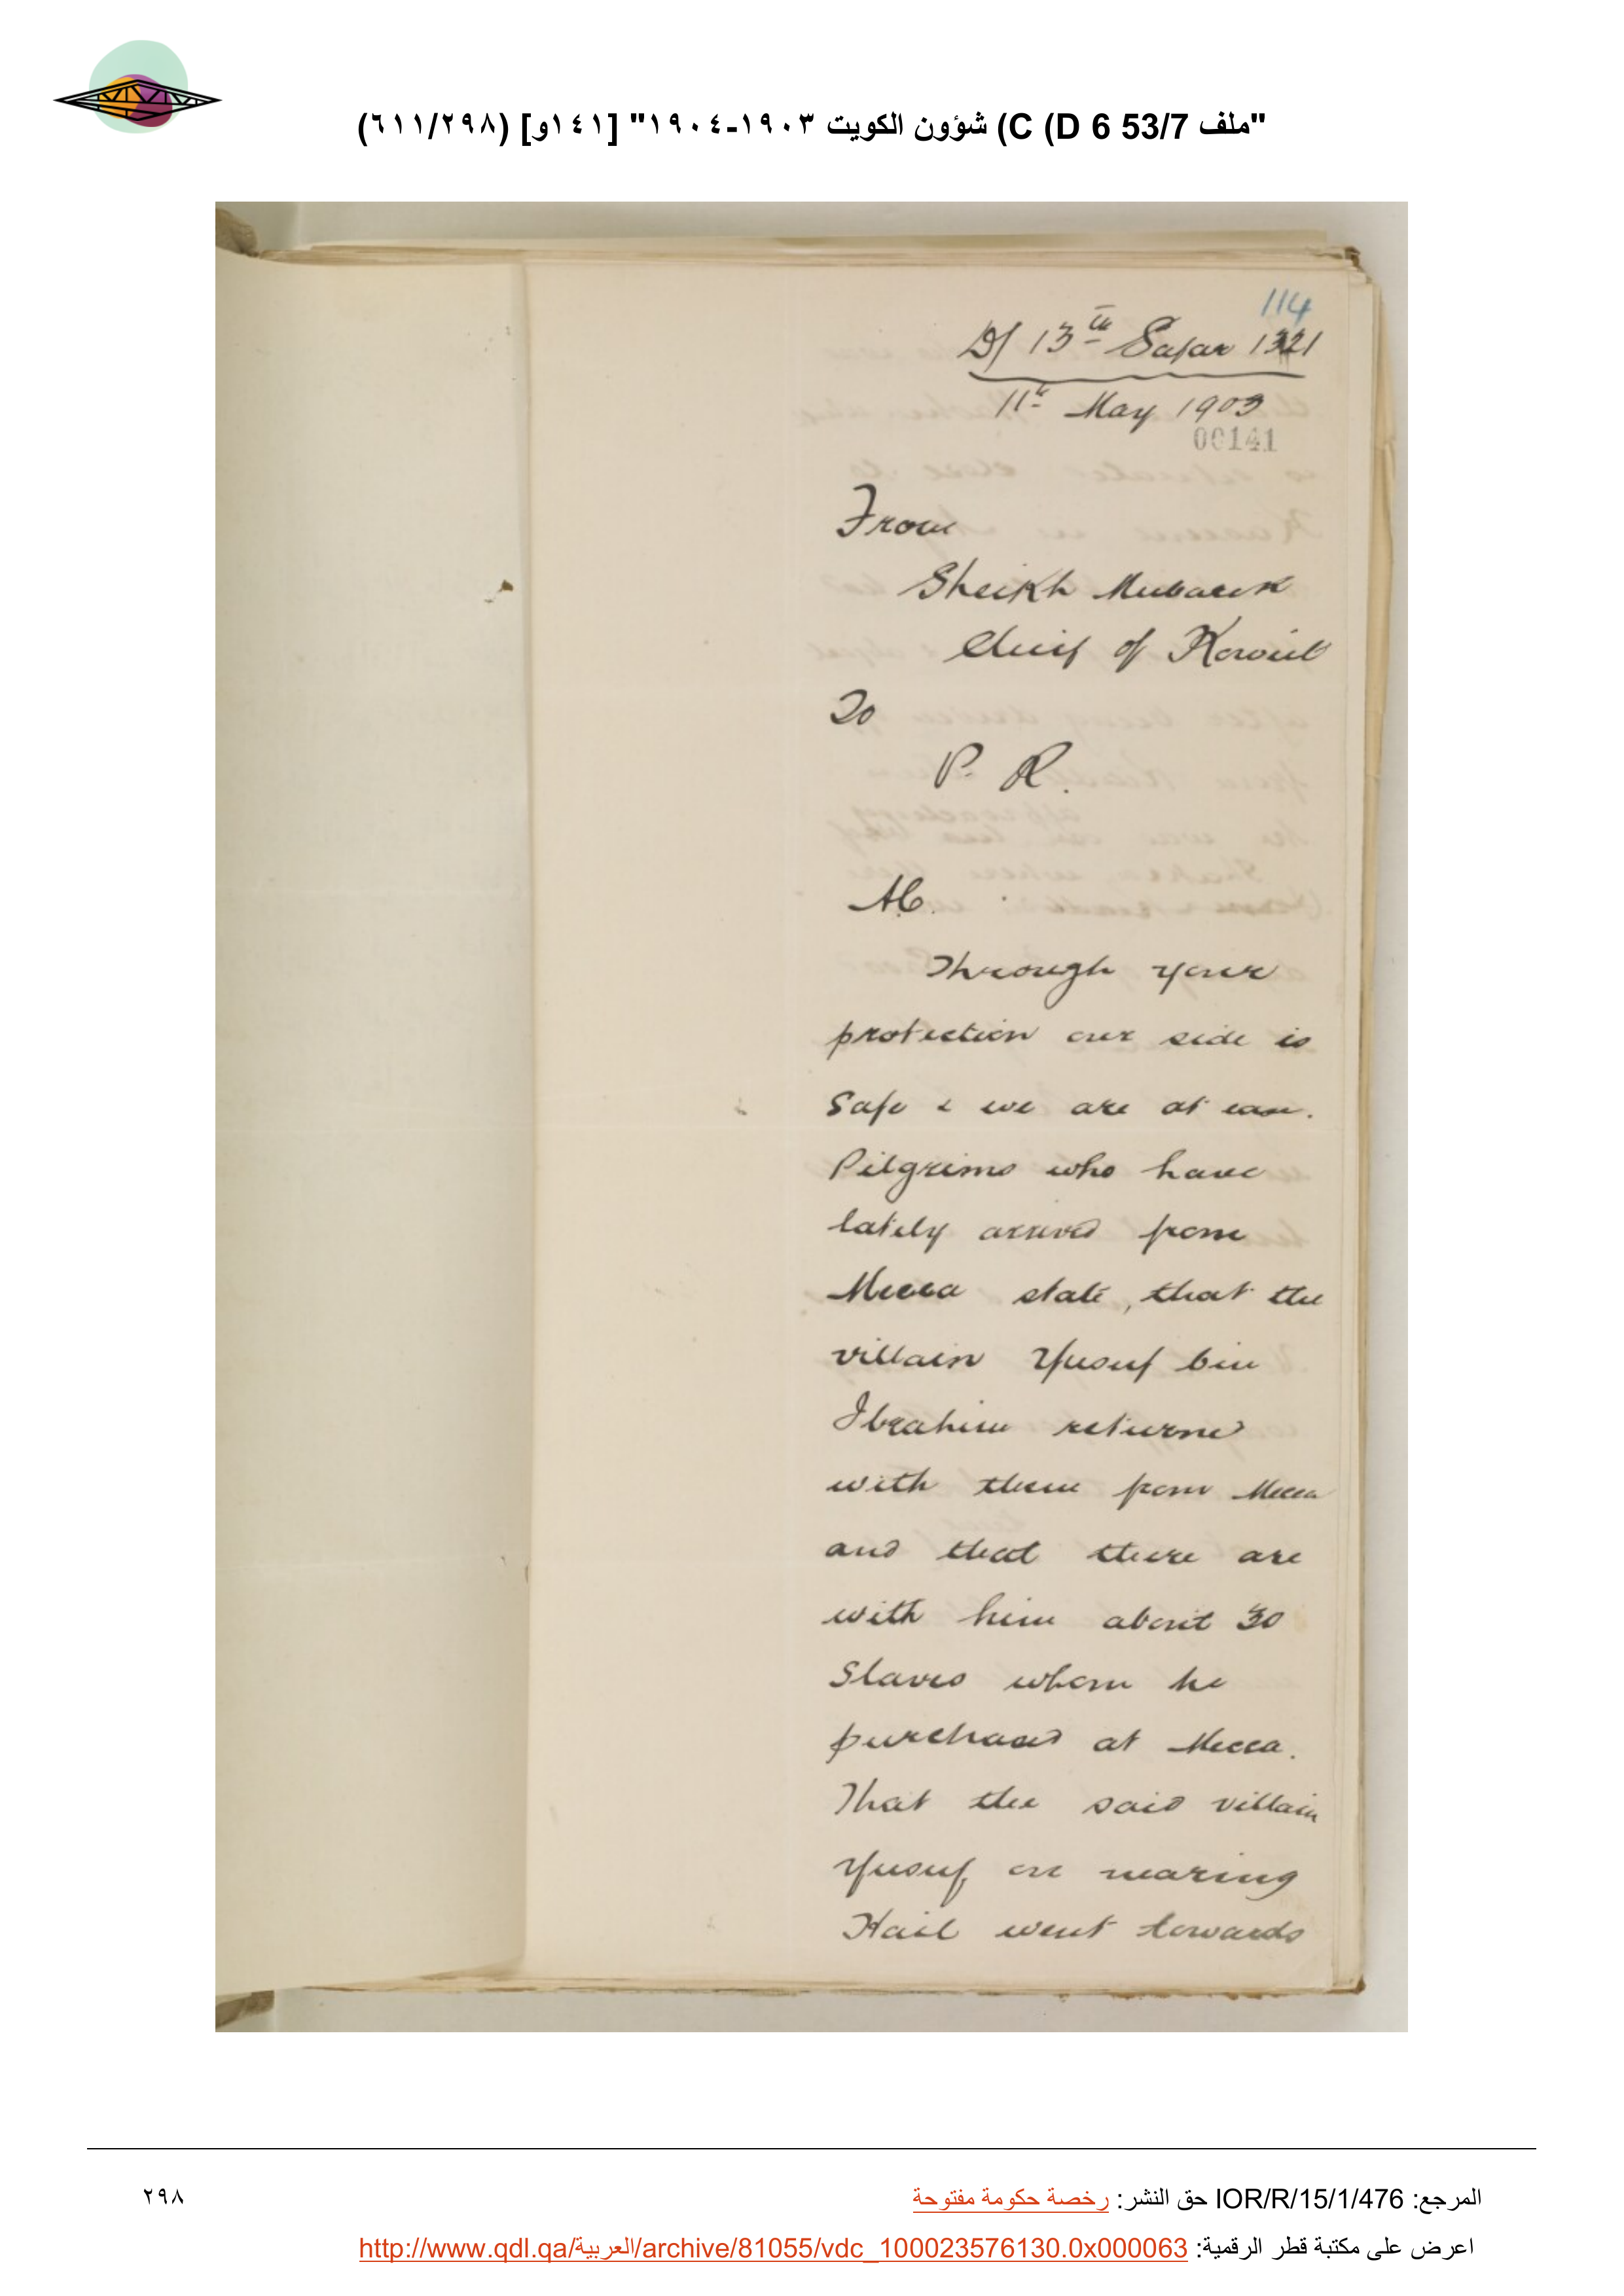 "ملف 53/7 C (D 6) شؤون الكويت ١٩٠٣-١٩٠٤" [١٤١و] (٦١١/٢٩٨)
114
D/ 13th Safar 1321
11th May 1903
00141
From
Sheikh Mubarak
Chief of Koweit
To
P. R.
A.C.
Through your
protection our side is
safe & we are at ease.
Pilgrims who have
lately arrived from
Mecca state, that the
villain Yusuf bin
Ibrahim returned
with them from Mecca
and that there are
with him about 30
Slaves whom he
purchased at Mecca.
That the said villain
Yusuf on nearing
Hail went towards
المرجع: IOR/R/15/1/476 حق النشر: رخصة حكومة مفتوحة
٢٩٨
اعرض على مكتبة قطر الرقمية: http://www.qdl.qa/العربية/archive/81055/vdc_100023576130.0x000063